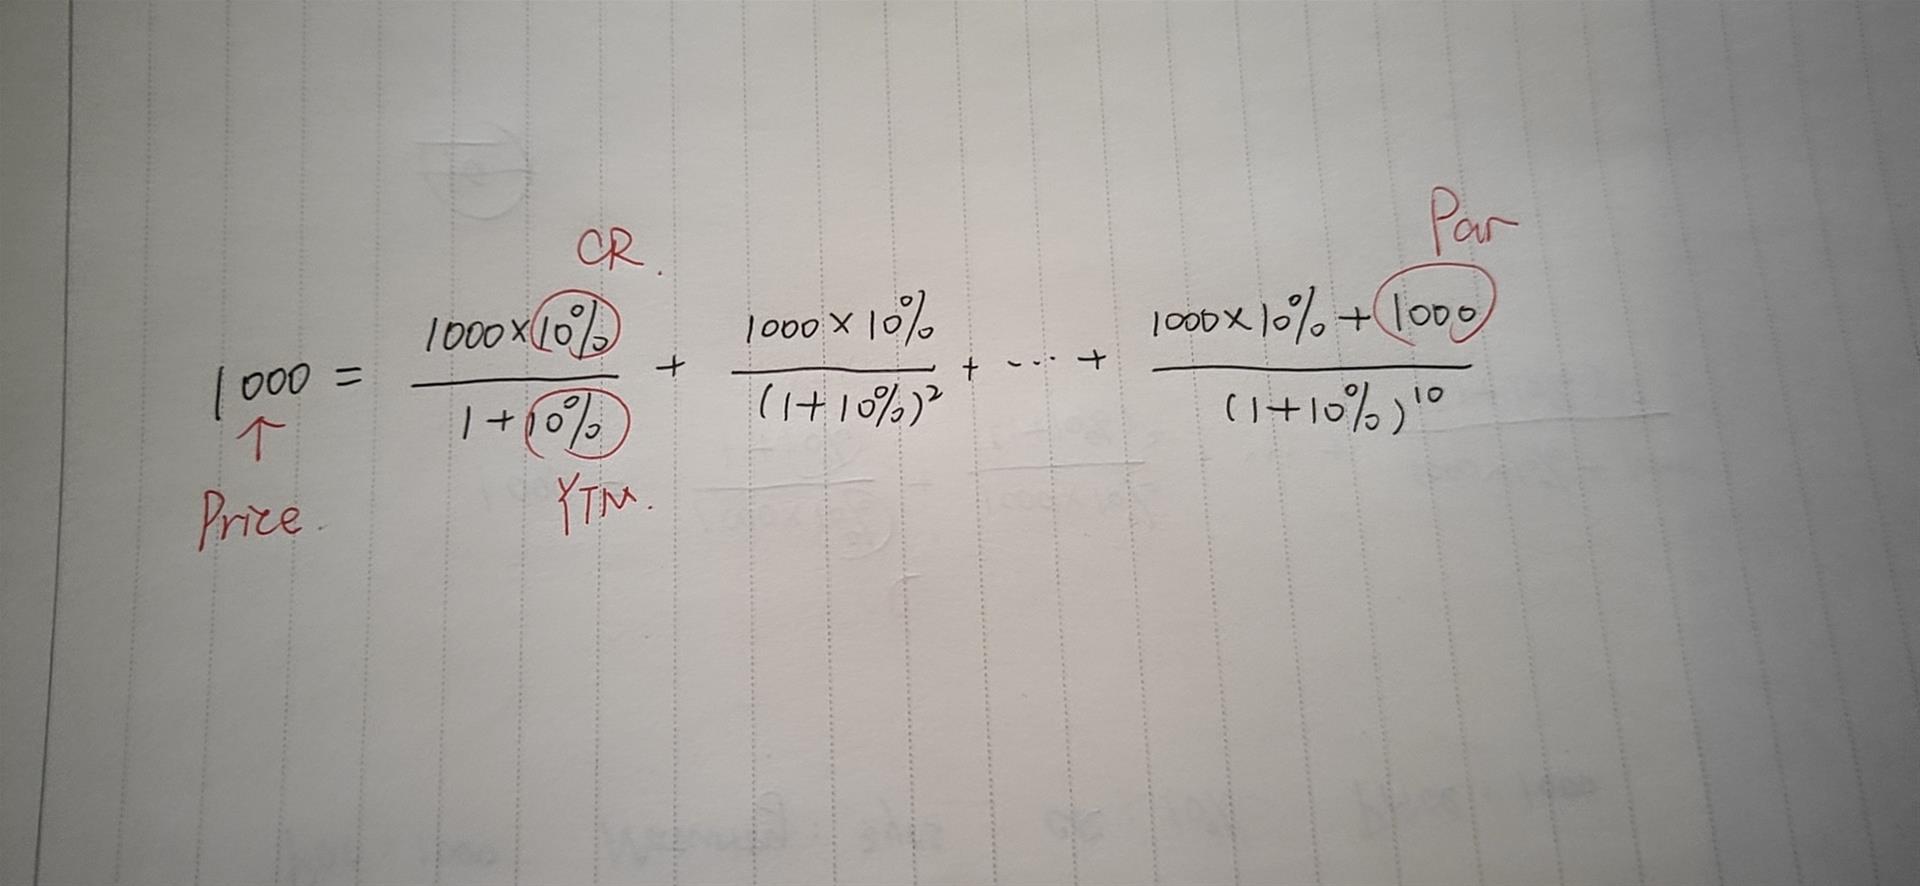 Par
CR.
1000 = 1000×10% / 1+10% + 1000×10% / (1+10%)² + ... + 1000×10%+1000 / (1+10%)¹⁰
↑
Price.
YTM.